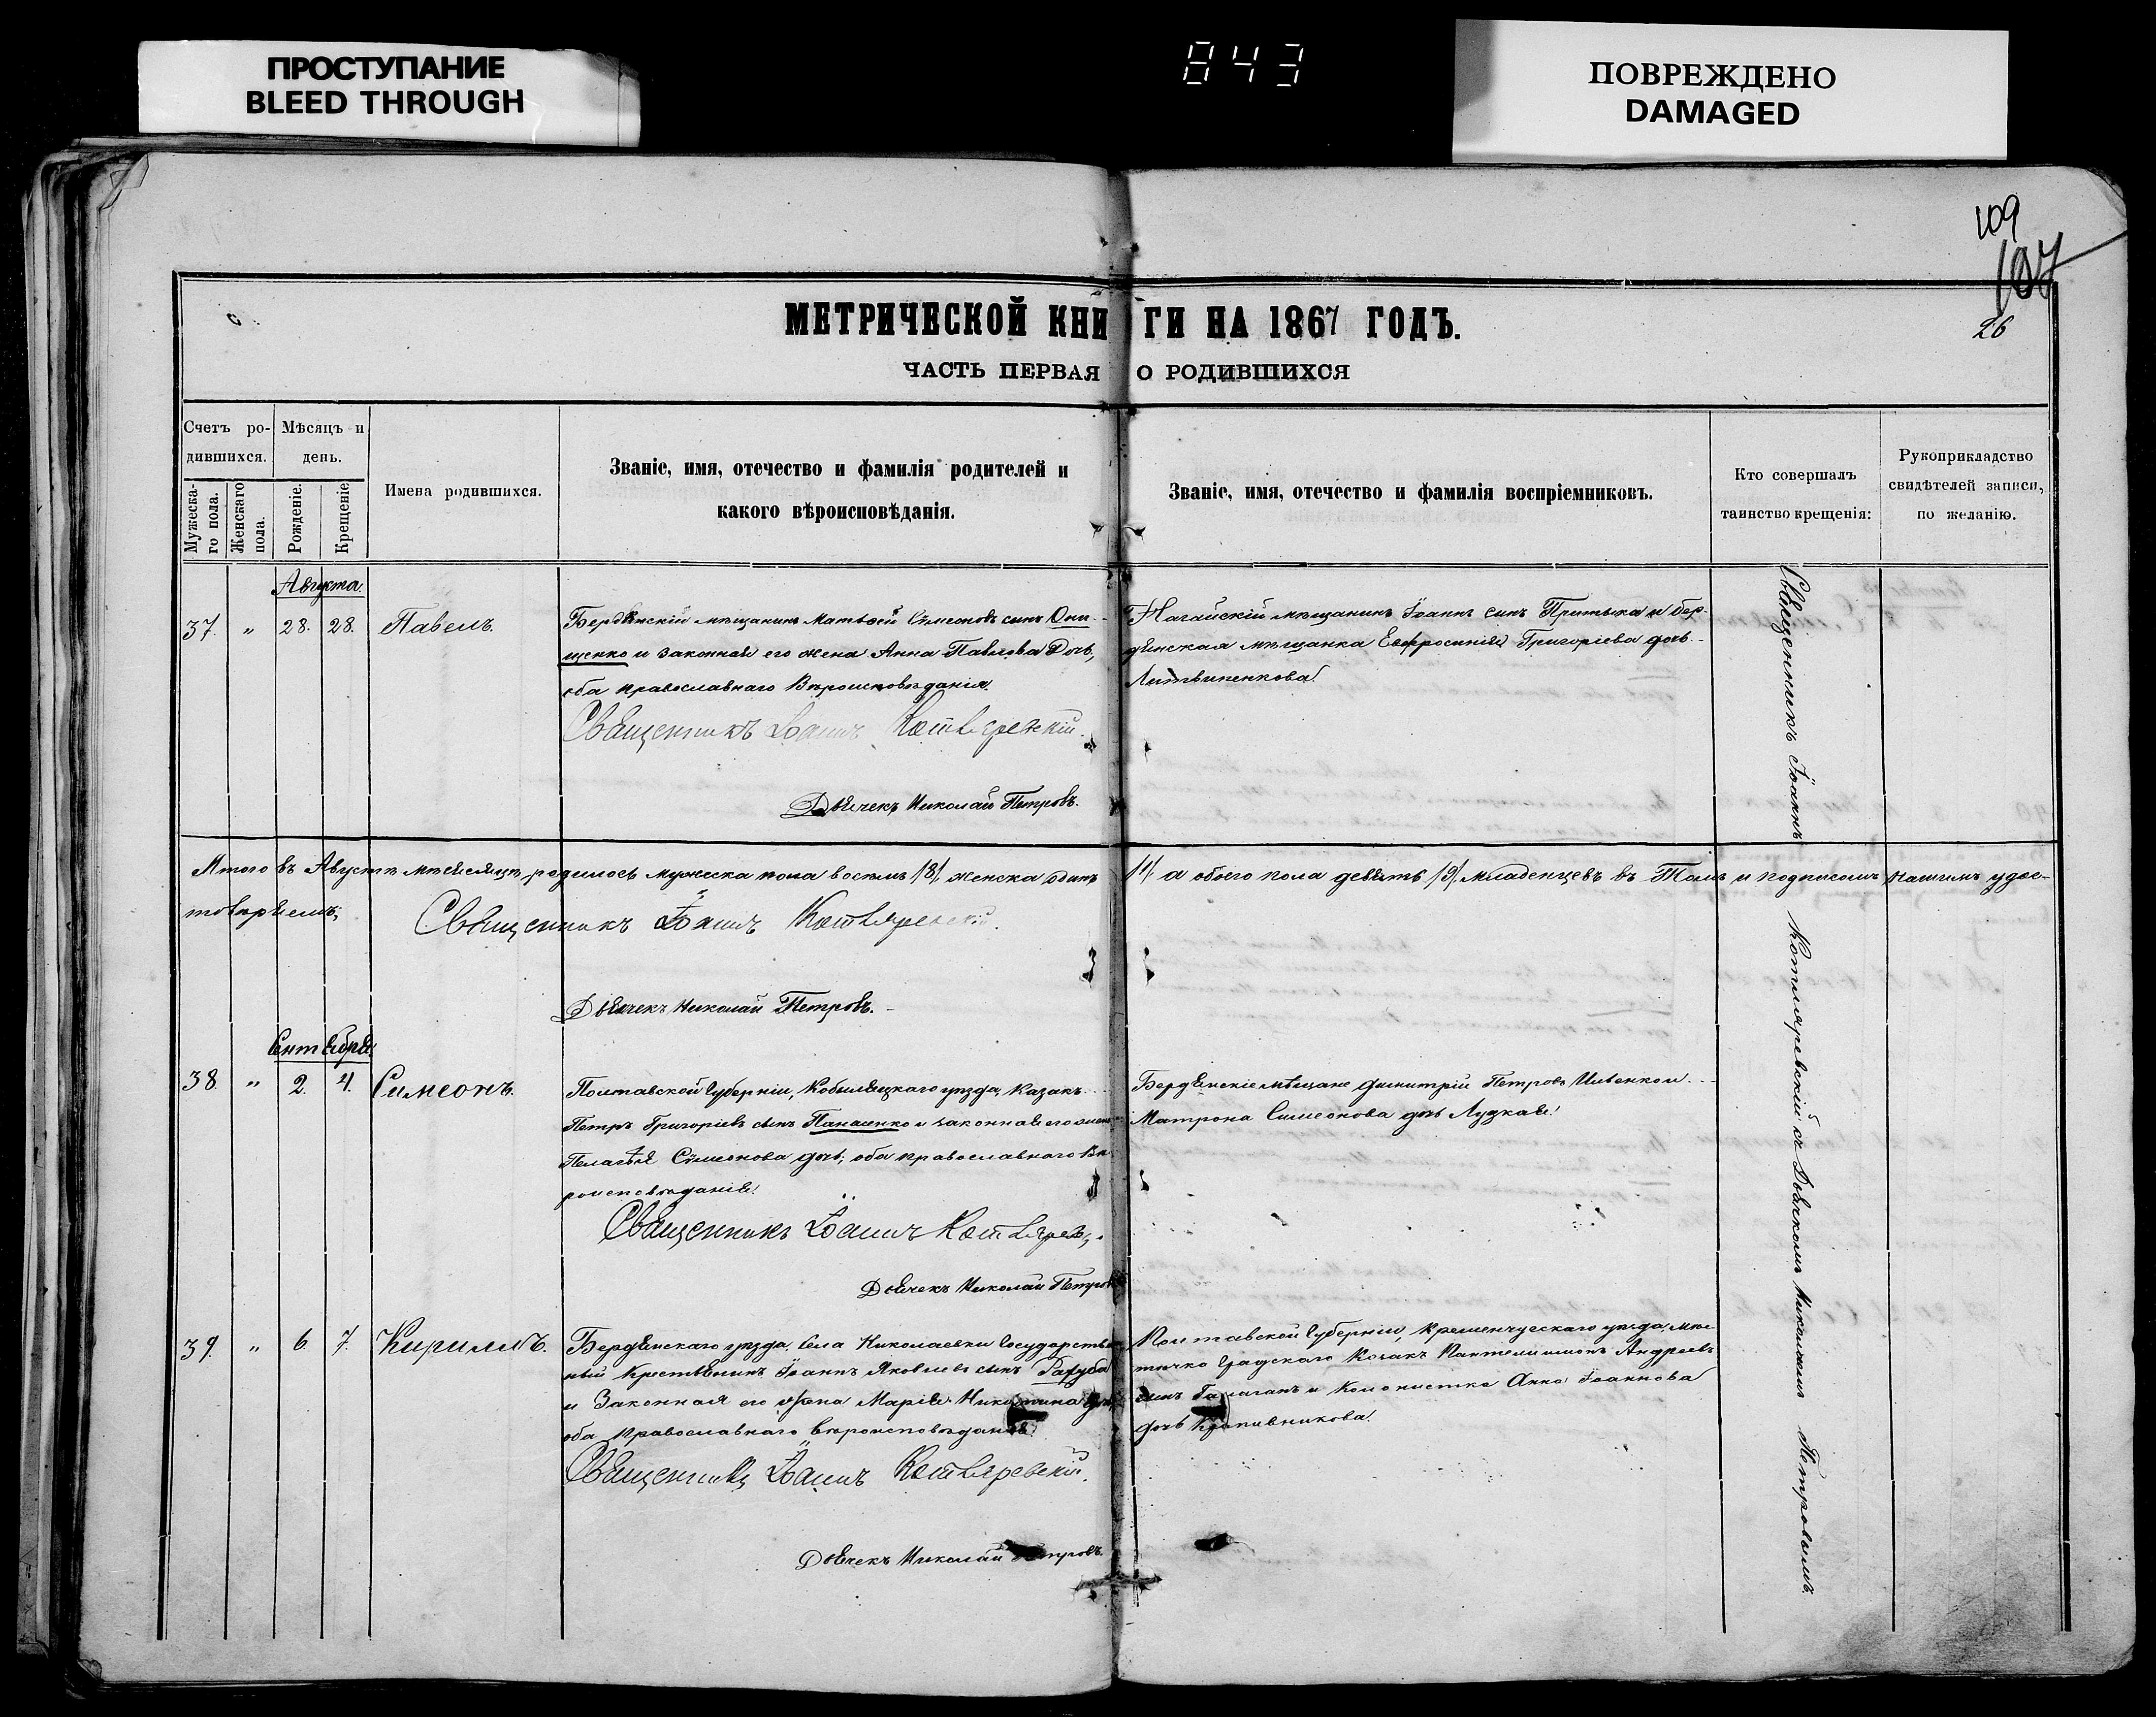 ПРОСТУПАНИЕ
BLEED THROUGH
843
ПОВРЕЖДЕНО
DAMAGED
109
107
26
МЕТРИЧЕСКОЙ КНИГИ НА 1867 ГОДЪ.
ЧАСТЬ ПЕРВАЯ О РОДИВШИХСЯ
Счетъ ро-
дившихся.
Мужеска-
го пола.
Женскаго
пола.
Мѣсяцъ и
день.
Рожденіе.
Крещеніе.
Имена родившихся.
Званіе, имя, отечество и фамилія родителей и
какого вѣроисповѣданія.
Званіе, имя, отечество и фамилія воспріемниковъ.
Кто совершалъ
таинство крещенія:
Рукоприкладство
свидѣтелей записи,
по желанію.
Августа.
37. " 28. 28. Павелъ.
Бердянскій мѣщанинъ Матвѣй Симеоновъ сынъ Они-
щенко и законная его жена Анна Павлова дочь,
оба православнаго Вѣроисповѣданія.
Священникъ Іоаннъ Котляревскій.
Дьячекъ Николай Петровъ.
Ногайскій мѣщанинъ Іоаннъ сынъ Притыка и бер-
дянская мѣщанка Евфросинія Григоріева дочь
Литвиненкова.
Итого въ Августѣ мѣсяцѣ родилось мужеска пола восемь /8/, женска одинъ /1/ а обоего пола девять /9/ младенцевъ въ томъ и подписомъ нашимъ удос-
товѣряемъ;
Священникъ Іоаннъ Котляревскій.
Дьячекъ Николай Петровъ.
Сентября.
38. " 2. 4. Симеонъ.
Полтавской Губерніи, Кобыляцкаго уѣзда, Казакъ
Петръ Григоріевъ сынъ Панасенко и законная его жена
Пелагѣя Симеонова дочь; оба православнаго Вѣ-
роисповѣданія.
Священникъ Іоаннъ Котлярев
Дьячекъ Николай Петровъ
Бердянскіе мѣщане Димитрій Петровъ и
Матрона Симеонова дочь Луцкая.
39. " 6. 7. Кириллъ.
Бердянскаго уѣзда, села Николаевки Государствен
ный Крестьянинъ Іоаннъ Яковлевъ сынъ
и Законная его жена Марія дочь
оба православнаго вѣроисповѣданія.
Священникъ Іоаннъ Котляревскій.
Дьячекъ Николай Петровъ.
Полтавской Губерніи, Кременчугскаго уѣзда, мѣс-
течка Градскаго Козакъ Пантелеимонъ Андреевъ
сынъ Галаганъ и Колонистка Анна Іоаннова
дочь Крапивникова.
Священникъ Іоаннъ Котляревскій съ Дьячкомъ Николаемъ Петровымъ.